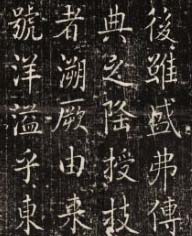 後雖盛弗傳
典之隆授枝
者溯厥由来
號洋溢乎東